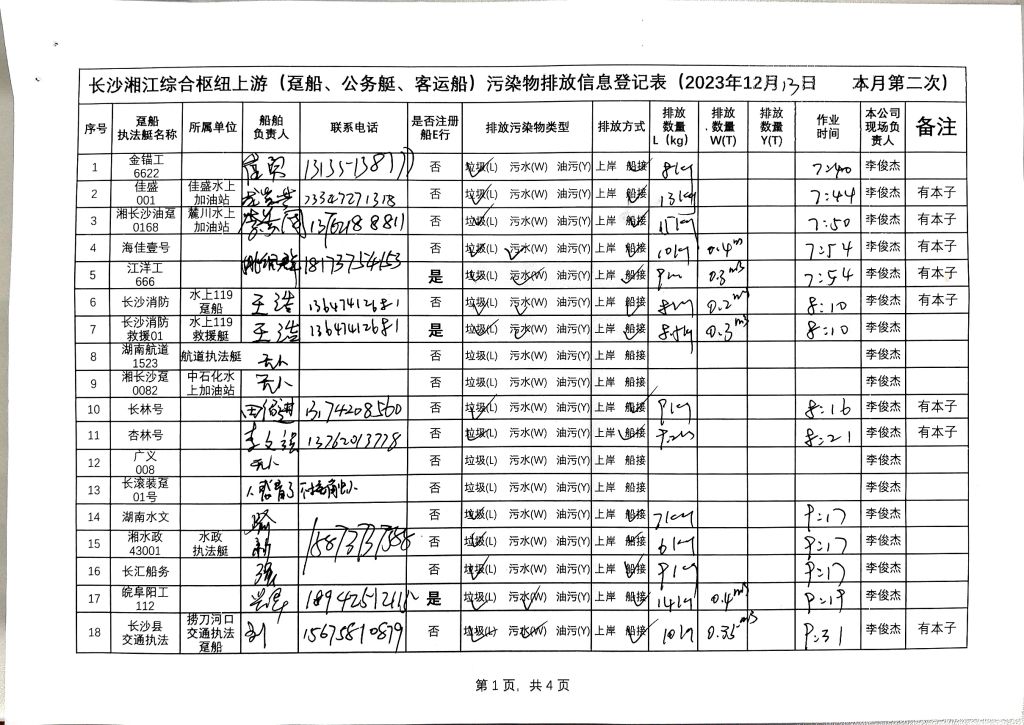 长沙湘江综合枢纽上游（趸船、公务艇、客运船）污染物排放信息登记表（2023年12月13日 本月第二次）
序号 趸船执法艇名称 所属单位 船舶负责人 联系电话 是否注册船E行 排放污染物类型 排放方式 排放数量L（kg） 排放数量W(T) 排放数量Y(T) 作业时间 本公司现场负责人 备注
1 金锚工6622 否 垃圾(L) 污水(W) 油污(Y) 上岸 船接 8kg 7:40 李俊杰
2 佳盛001 佳盛水上加油站 否 垃圾(L) 污水(W) 油污(Y) 上岸 船接 13kg 7:44 李俊杰 有本子
3 湘长沙油趸0168 麓川水上加油站 否 垃圾(L) 污水(W) 油污(Y) 上岸 船接 7:50 李俊杰 有本子
4 海佳壹号 否 垃圾(L) 污水(W) 油污(Y) 上岸 船接 10kg 0.4m³ 7:54 李俊杰 有本子
5 江洋工666 18173754153 是 垃圾(L) 污水(W) 油污(Y) 上岸 船接 0.3m³ 7:54 李俊杰 有本子
6 长沙消防 水上119趸船 王浩 13647412681 否 垃圾(L) 污水(W) 油污(Y) 上岸 船接 8kg 0.2m³ 8:10 李俊杰 有本子
7 长沙消防救援01 水上119救援艇 王浩 13647412681 是 垃圾(L) 污水(W) 油污(Y) 上岸 船接 0.3m³ 8:10 李俊杰
8 湖南航道1523 航道执法艇 无人 否 垃圾(L) 污水(W) 油污(Y) 上岸 船接 李俊杰
9 湘长沙趸0082 中石化水上加油站 无人 否 垃圾(L) 污水(W) 油污(Y) 上岸 船接 李俊杰
10 长林号 13174208560 否 垃圾(L) 污水(W) 油污(Y) 上岸 船接 9kg 8:16 李俊杰 有本子
11 杏林号 李文强 13762013778 否 垃圾(L) 污水(W) 油污(Y) 上岸 船接 8:21 李俊杰 有本子
12 广义008 无人 否 垃圾(L) 污水(W) 油污(Y) 上岸 船接 李俊杰
13 长滚装趸01号 否 垃圾(L) 污水(W) 油污(Y) 上岸 船接 李俊杰
14 湖南水文 否 垃圾(L) 污水(W) 油污(Y) 上岸 船接 7kg 9:17 李俊杰
15 湘水政43001 水政执法艇 否 垃圾(L) 污水(W) 油污(Y) 上岸 船接 6kg 9:17 李俊杰
16 长汇船务 否 垃圾(L) 污水(W) 油污(Y) 上岸 船接 9kg 9:17 李俊杰
17 皖阜阳工112 是 垃圾(L) 污水(W) 油污(Y) 上岸 船接 14kg 0.4m³ 9:19 李俊杰
18 长沙县交通执法 捞刀河口交通执法趸船 15675810879 否 垃圾(L) 污水(W) 油污(Y) 上岸 船接 10kg 0.35m³ 9:31 李俊杰 有本子
第 1 页，共 4 页